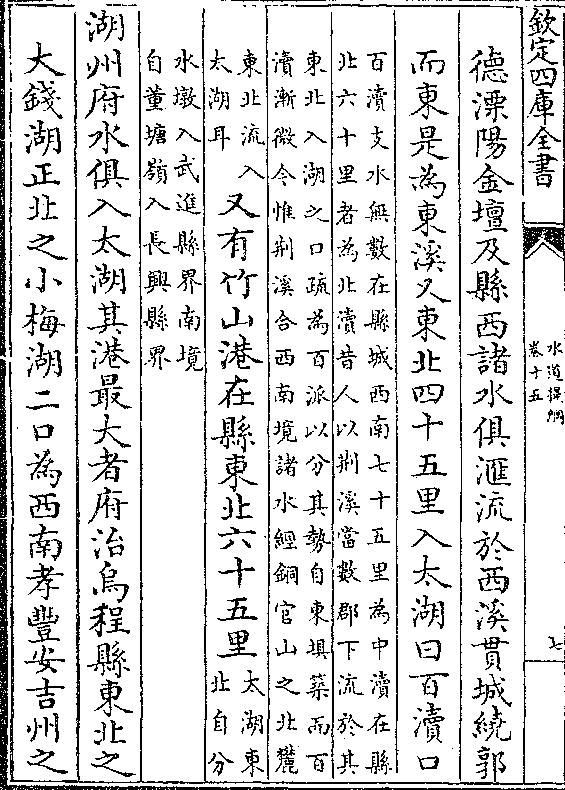 欽定四庫全書
水道提綱
卷十五
七
德溧陽金壇及縣西諸水俱滙流於西溪貫城繞郭
而東是為東溪又東北四十五里入太湖曰百瀆口
百瀆支水無數在縣城西南七十五里為中瀆在縣
北六十里者為北瀆昔人以荆溪當數郡下流於其
東北入湖之口疏為百派以分其勢自東埧築而百
瀆漸微今惟荆溪合西南境諸水經銅官山之北麓
東北流入
太湖耳
又有竹山港在縣東北六十五里
太湖東
北自分
水墩入武進縣界南境
自董塘嶺入長興縣界
湖州府水俱入太湖其港最大者府治烏程縣東北之
大錢湖正北之小梅湖二口為西南孝豐安吉州之